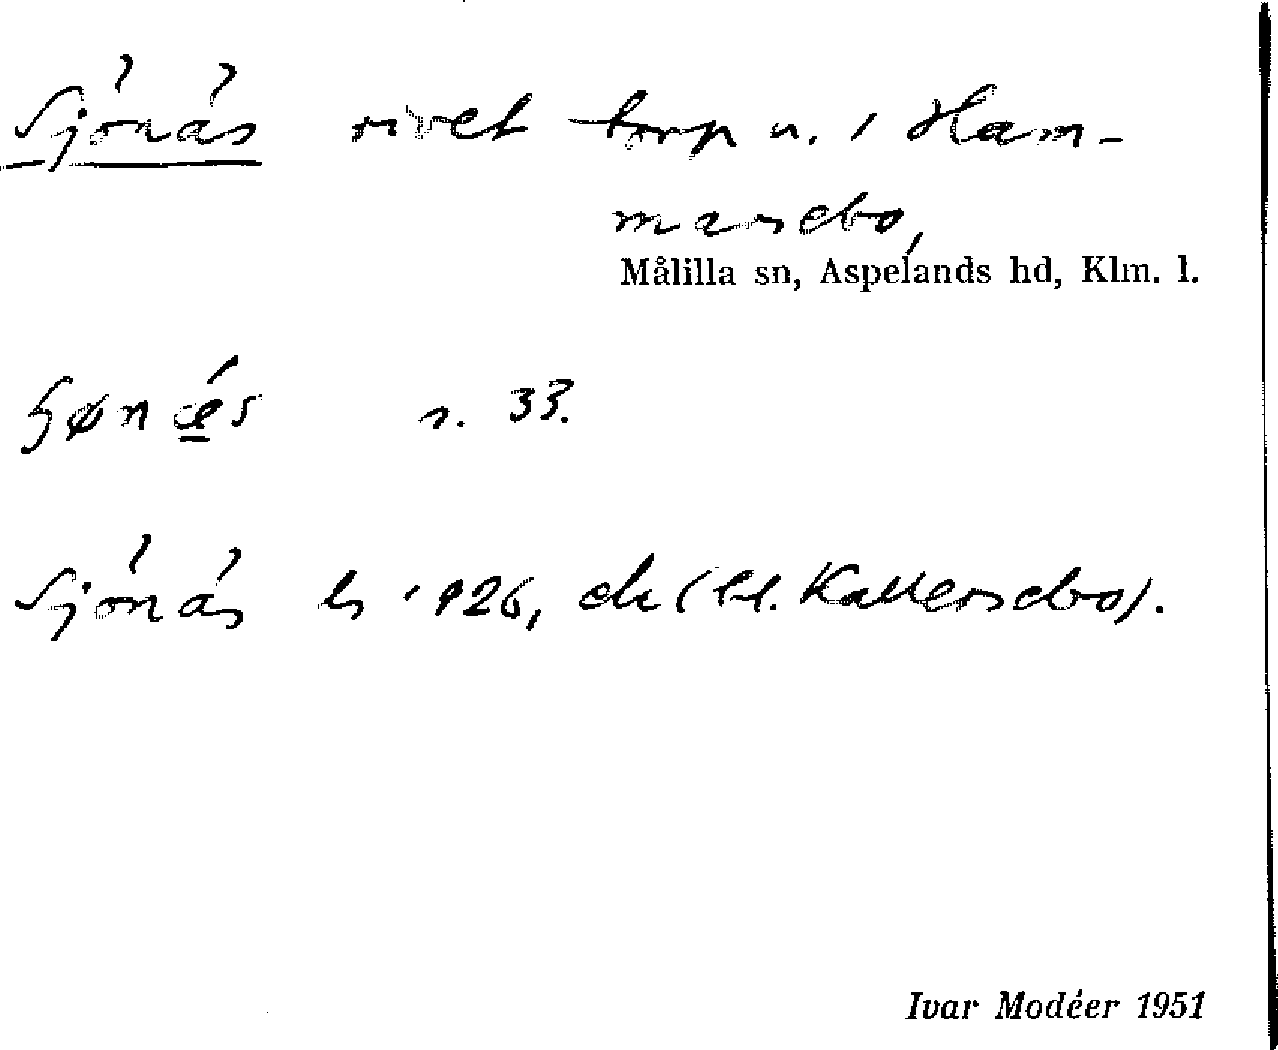 Sjönäs rivet torp u. i Ham-
marsebo,
Målilla sn, Aspelands hd, Klm. l.
s. 33.
Sjönäs 1926, ek (Kallersebo).
Ivar Modéer 1951